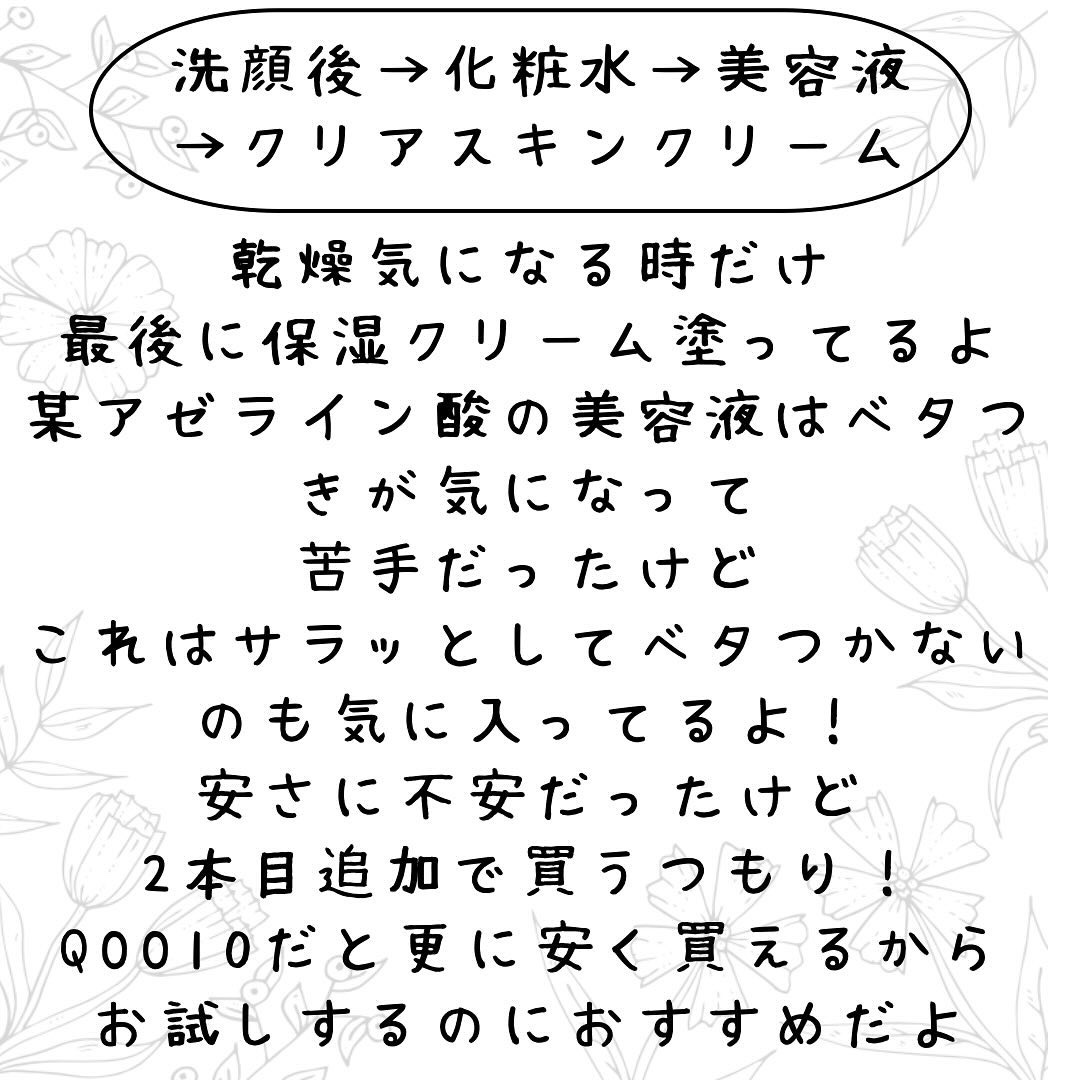 洗顔後→化粧水→美容液
→クリアスキンクリーム
乾燥気になる時だけ
最後に保湿クリーム塗ってるよ
某アゼライン酸の美容液はベタつ
きが気になって
苦手だったけど
これはサラッとしてベタつかない
のも気に入ってるよ！
安さに不安だったけど
2本目追加で買うつもり！
Q0010だと更に安く買えるから
お試しするのにおすすめだよ